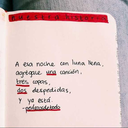 A esa noche con luna llena,
agrégale una canción,
tres copas,
dos despedidas,
y ya está.